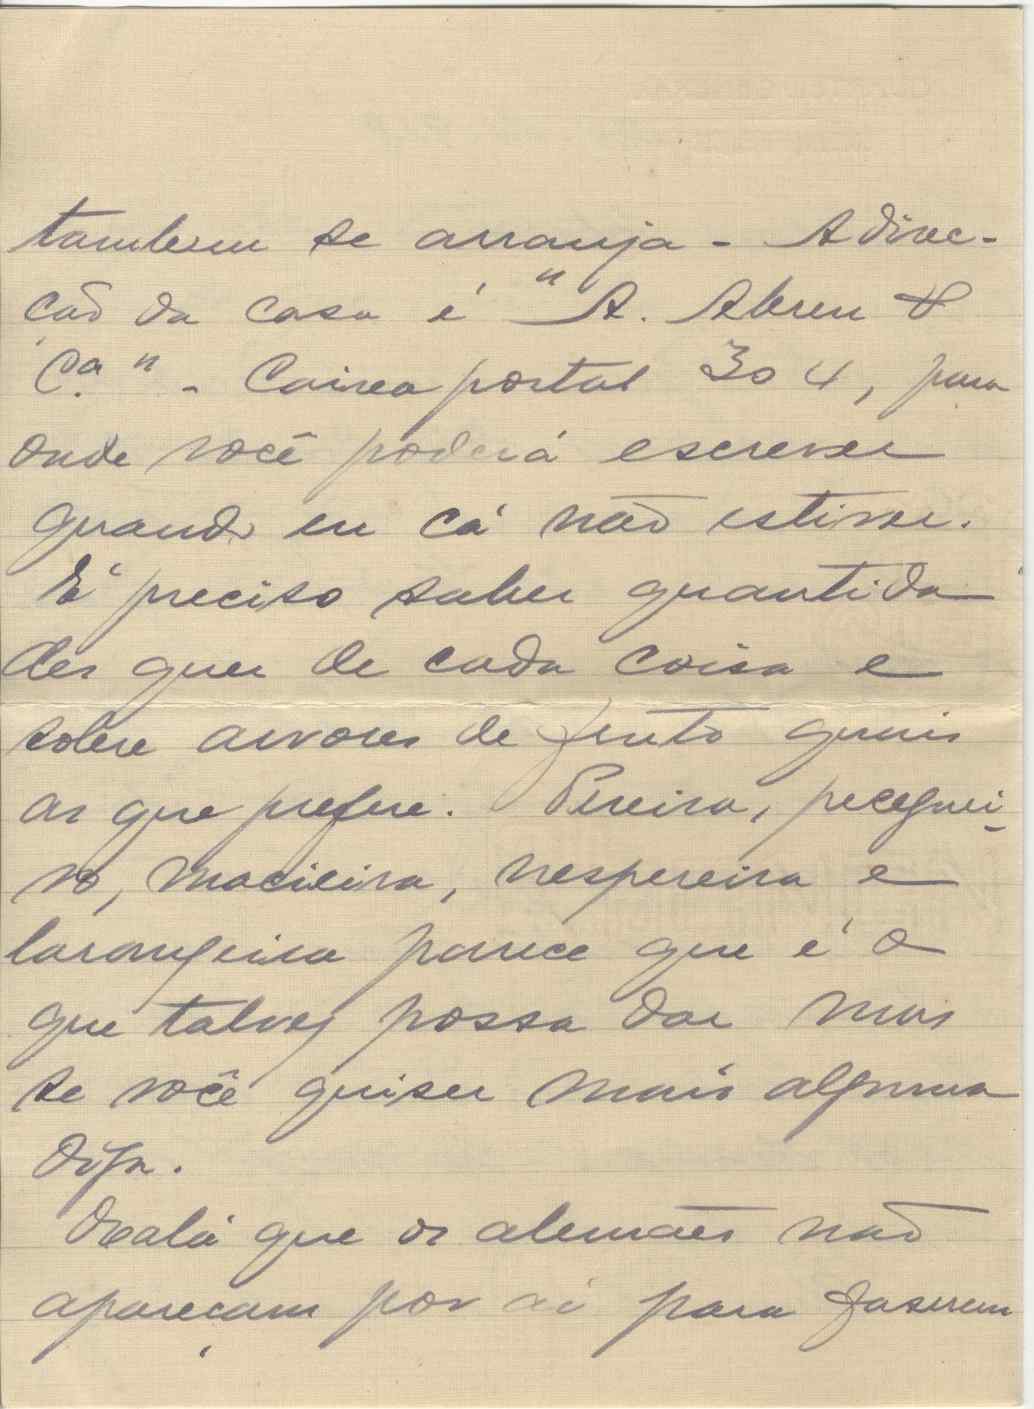 tambem se arranja - A direc-
ção da casa é "A. Abreu &
C.ª" - Caixa postal 304, para
onde você poderá escrever
quando eu cá não estiver.
É preciso saber quantida
des quer de cada coisa e
sobre arvores de fruto quais
as que prefere. Pereira, peceguei-
ro, macieira, nespereira e
larangeira parece que é o
que talvez possa dar mas
se você quiser mais alguma
diga.
Oxalá que os alemães não
apareçam por aí para faserem